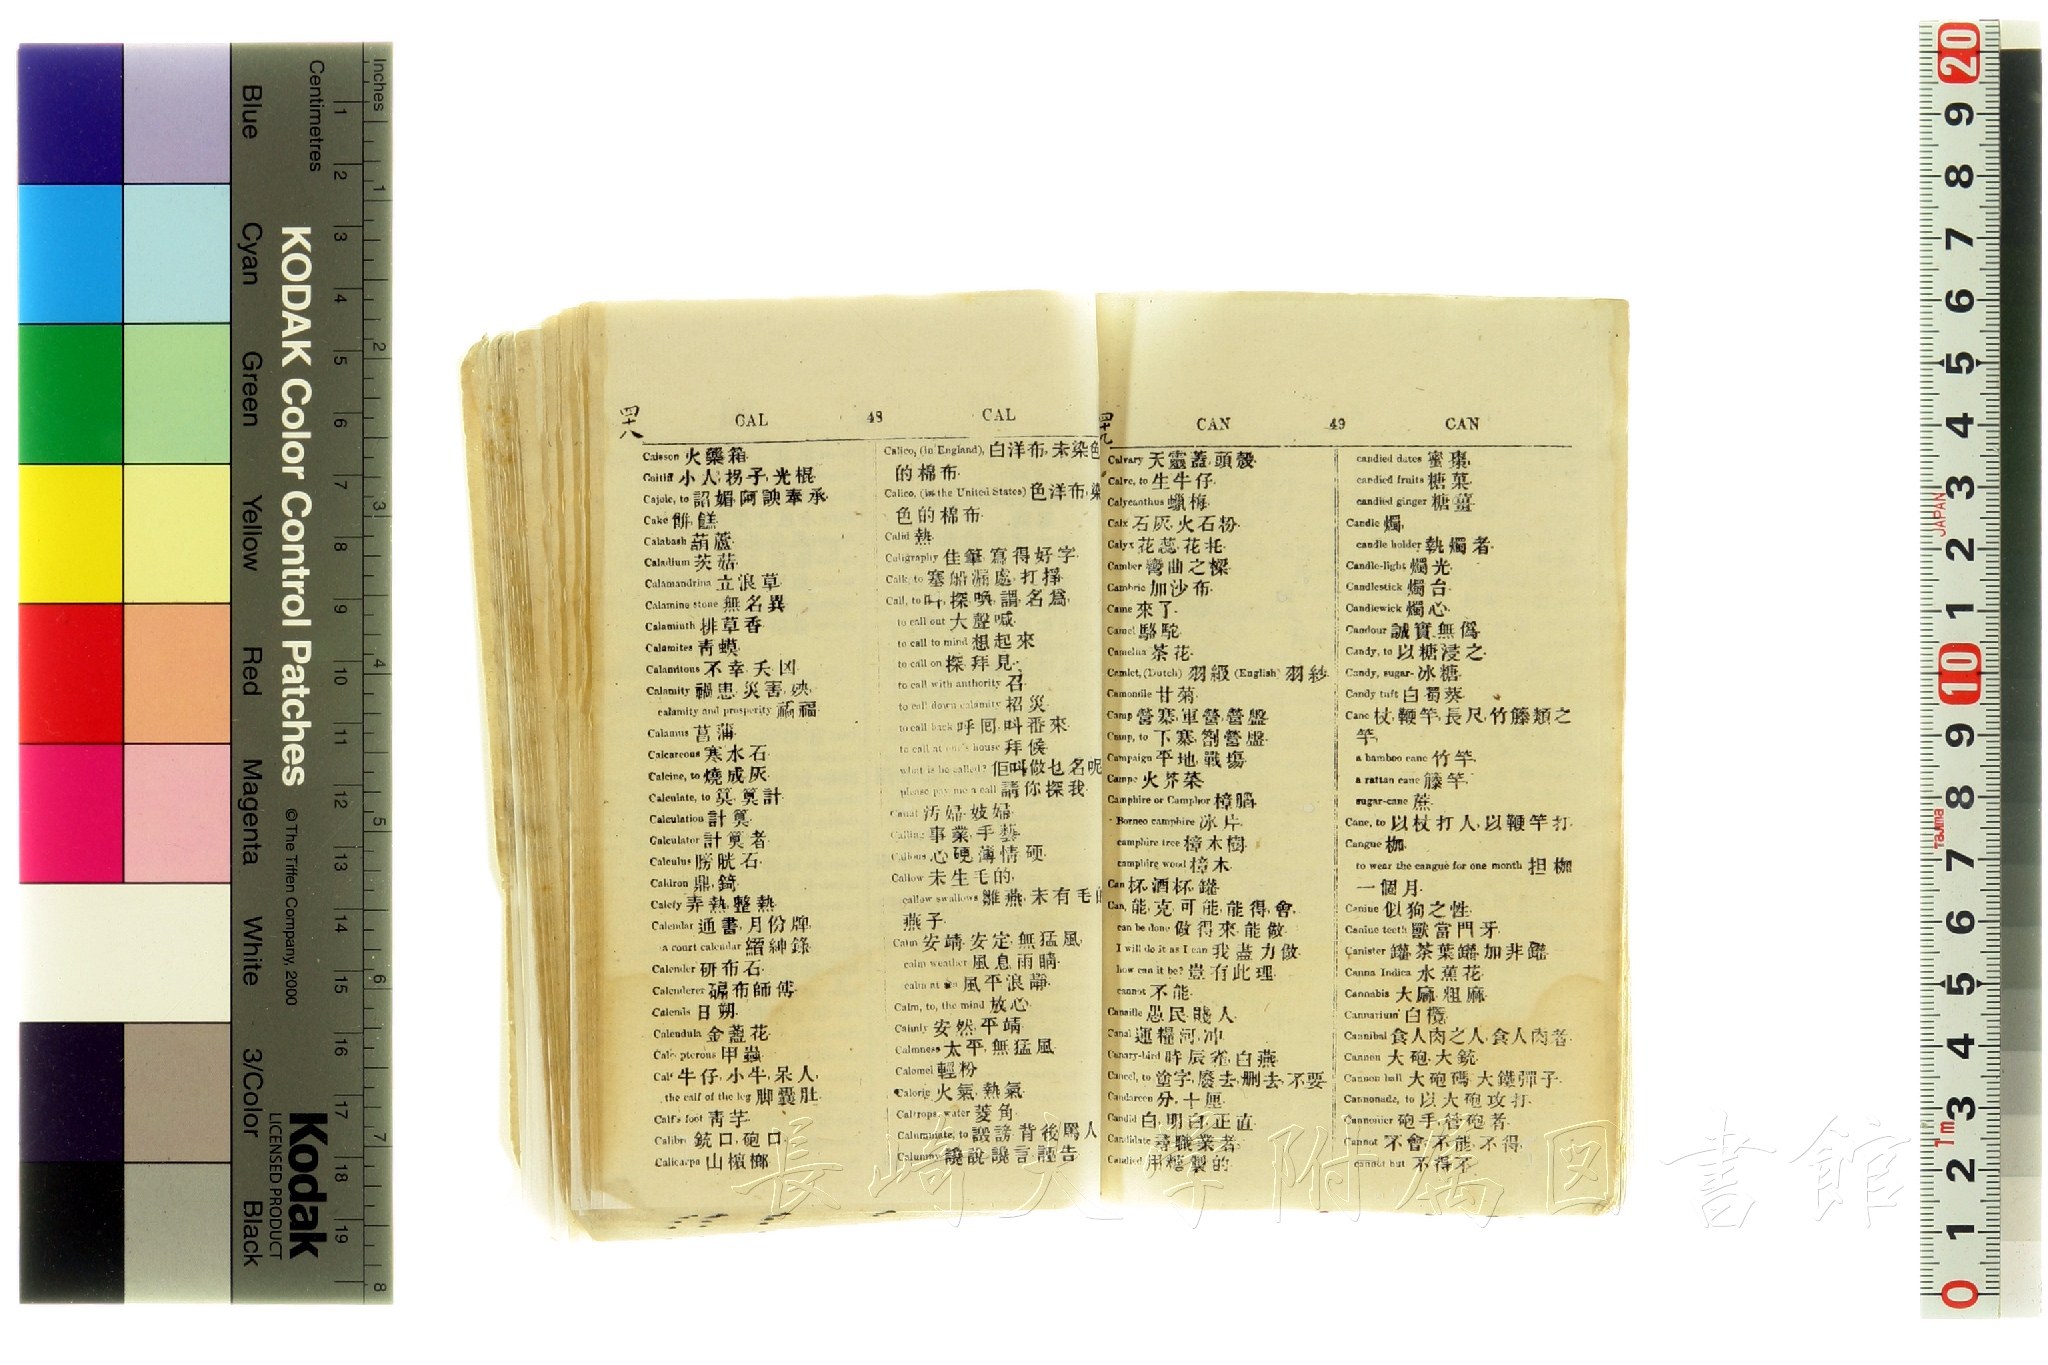 四十八
CAL 48 CAL
Caisson 火藥箱.
Caitiff 小人, 拐子, 光棍.
Cajole, to 諂媚, 阿諛, 奉承.
Cake 餅, 餻.
Calabash 葫蘆.
Caladium 茨菇.
Calamandrina 立浪草
Calamine stone 無名異
Calaminth 排草香
Calamites 靑蟆.
Calamitous 不幸, 夭, 凶.
Calamity 禍患, 災害, 殃.
calamity and prosperity 禍福.
Calamus 菖蒲.
Calcareous 寒水石.
Calcine, to 燒成灰.
Calculate, to 筭, 筭計.
Calculation 計筭.
Calculator 計筭者.
Calculus 膀胱石.
Caldron 鼎, 錡.
Calefy 弄熱, 整熱.
Calendar 通書, 月份牌.
a court calendar 縉紳錄.
Calender 研布石.
Calenderer 碾布師傅.
Calends 日朔.
Calendula 金盞花.
Caleopterous 甲蟲.
Calf 牛仔, 小牛, 呆人.
the calf of the leg 脚囊肚.
Calf's foot 靑芋.
Calibre 銃口, 砲口.
Calicarpa 山檳榔.
Calico, (in England), 白洋布, 未染色
的棉布.
Calico, (in the United States) 色洋布, 染
色的棉布.
Calid 熱.
Caligraphy 佳筆, 寫得好字.
Calk, to 塞船漏處, 打
Call, to 叫, 探, 喚, 謂, 名爲.
to call out 大聲喊.
to call to mind 想起來.
to call on 探, 拜見.
to call with authority 召.
to call down calamity 招災.
to call back 呼囘, 叫番來.
to call at one's house 拜候.
what is he called? 佢叫做乜名呢
please pay me a call 請你探我.
汚婦, 妓婦.
Calling 事業, 手藝.
Callous 心硬, 薄情, 硬.
Callow 未生毛的.
callow swallows 雛燕, 未有毛的
燕子.
Calm 安靖, 安定, 無猛風.
calm weather 風息雨晴.
calm at sea 風平浪靜.
Calm, to, the mind 放心.
Calmly 安然, 平靖.
Calmness 太平, 無猛風.
Calomel 輕粉
Caloric 火氣, 熱氣.
Caltrops, water 菱角.
Calumniate, to 譭謗, 背後罵人.
Calumny 讒說, 讒言, 誣告.
四十九
CAN 49 CAN
Calvary 天靈蓋, 頭殼.
Calve, to 生牛仔.
Calycanthus 蠟梅.
Calx 石灰, 火石粉.
Calyx 花蕊, 花托.
Camber 彎曲之樑.
Cambric 加沙布.
Came 來了.
Camel 駱駝.
Camelia 茶花.
Camlet, (Dutch) 羽緞 (English) 羽紗.
Camomile 甘菊.
Camp 營寨, 軍營, 營盤.
Camp, to 下寨, 劄營盤.
Campaign 平地, 戰場.
Campe 火芥菜.
Camphire or Camphor 樟腦.
Borneo camphire 冰片.
camphire tree 樟木樹.
camphire wood 樟木.
Can 杯, 酒杯, 鑵.
Can, 能, 克, 可能, 能得, 會.
can be done 做得來, 能做.
I will do it as I can 我盡力做.
how can it be? 豈有此理.
cannot 不能.
Canaille 愚民, 賤人.
Canal 運糧河, 冲.
Canary-bird 時辰雀, 白燕.
Cancel, to 塗字, 廢去, 删去, 不要.
Candareen 分, 十厘.
Candid 白, 明白, 正直.
Candidate 尋職業者.
Candied 用糖製的.
candied dates 蜜棗.
candied fruits 糖菓.
candied ginger 糖薑.
Candle 燭.
candle holder 執燭者.
Candle-light 燭光.
Candlestick 燭台.
Candlewick 燭心.
Candour 誠實, 無僞.
Candy, to 以糖浸之.
Candy, sugar- 冰糖.
Candy tuft 白蜀葵.
Cane 杖, 鞭竿, 長尺, 竹籐類之
竿.
a bamboo cane 竹竿.
a rattan cane 籐竿.
sugar-cane 蔗.
Cane, to 以杖打人, 以鞭竿打.
Cangue 枷.
to wear the cangue for one month 担枷
一個月.
Canine 似狗之性.
Canine teeth 獸當門牙.
Canister 鑵, 茶葉鑵, 加非鑵.
Canna Indica 水蕉花.
Cannabis 大麻, 粗麻.
Cannarium 白欖.
Cannibal 食人肉之人, 食人肉者.
Cannon 大砲, 大銃.
Cannon ball 大砲碼, 大鐵彈子.
Cannonade, to 以大砲攻打.
Cannonier 砲手, 管砲者.
Cannot 不會, 不能, 不得.
cannot but 不得不.
長崎大学附属図書館
KODAK Color Control Patches
© The Tiffen Company, 2000
Kodak
LICENSED PRODUCT
Inches 1 2 3 4 5 6 7 8
Centimetres 1 2 3 4 5 6 7 8 9 10 11 12 13 14 15 16 17 18 19
Blue Cyan Green Yellow Red Magenta White 3/Color Black
20 9 8 7 6 5 4 3 2 1 10 9 8 7 6 5 4 3 2 1 0
JAPAN
Tajima
1m